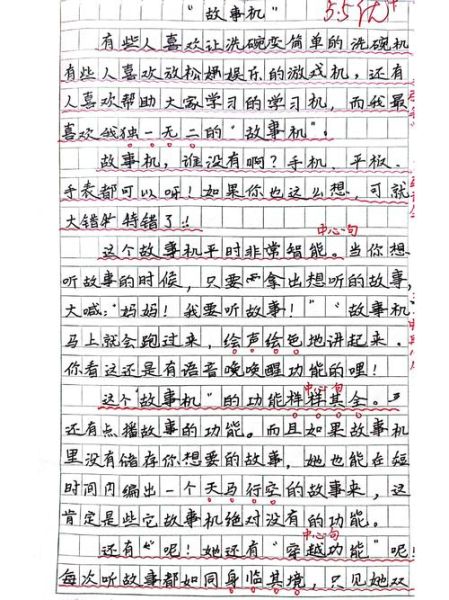 "故事机"
55优+
有些人喜欢让洗碗变简单的洗碗机
有些人喜欢放松娱乐的游戏机，还有
人喜欢帮助大家学习的学习机，而我最
喜欢我独一无二的"故事机"。
故事机，谁没有啊？手机、平板、
手表都可以呀！如果你也这么想，可就
大错特错了！
中心句
这个故事机平时非常智能。当你想
听故事的时候，只要拿出想听的故事，
大喊："妈妈！我要听故事！""故事机
马上就会跑过来，绘声绘色地讲起来。
你看这还是有语音唤醒功能的哩！
中心句
这个"故事机"的功能样样其全。
还有点播故事的功能。而且如果故事机
里没有储存你想要的故事，她也能在短
时间内编出一个天马行空的故事来，这
肯定是些它故事机绝对没有的功能。
中心句
还有呢！她还有"穿越功能"呢
每次听故事都如同身临其境，只见她双